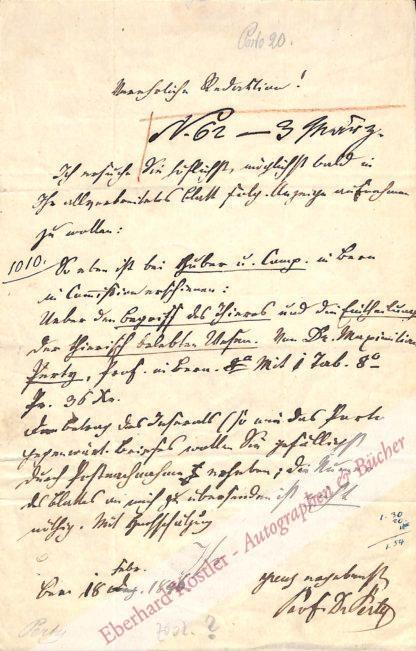 Porto 20.
Verehrliche Redaktion!
N. 62 — 3 März.
Ich ersuche Sie höflichst, möglichst bald in
Ihr allverbreitetes Blatt folg. Anzeige aufnehmen
zu wollen:
1010.
So eben ist bei Huber u. Comp. in Bern
in Commission erschienen:
Ueber den Begriff des Thieres und die Eintheilung
der thierisch belebten Wesen. Von Dr. Maximilian
Perty, Prof. in Bern. Mit 1 Tab. 8°
Pr. 36 Xr.
Den Betrag des Inserats (so wie das Porto
gegenwärt. Briefes wollen Sie gefälligst
durch Postnachnahme erheben; die
des Blattes an mich zu übersenden ist nicht
nöthig. Mit Hochschätzung
1.30
20
1.54
Febr.
Bern 18
ergebenst
Prof. Dr Perty
Perty
Eberhard Köstler - Autographen & Bücher